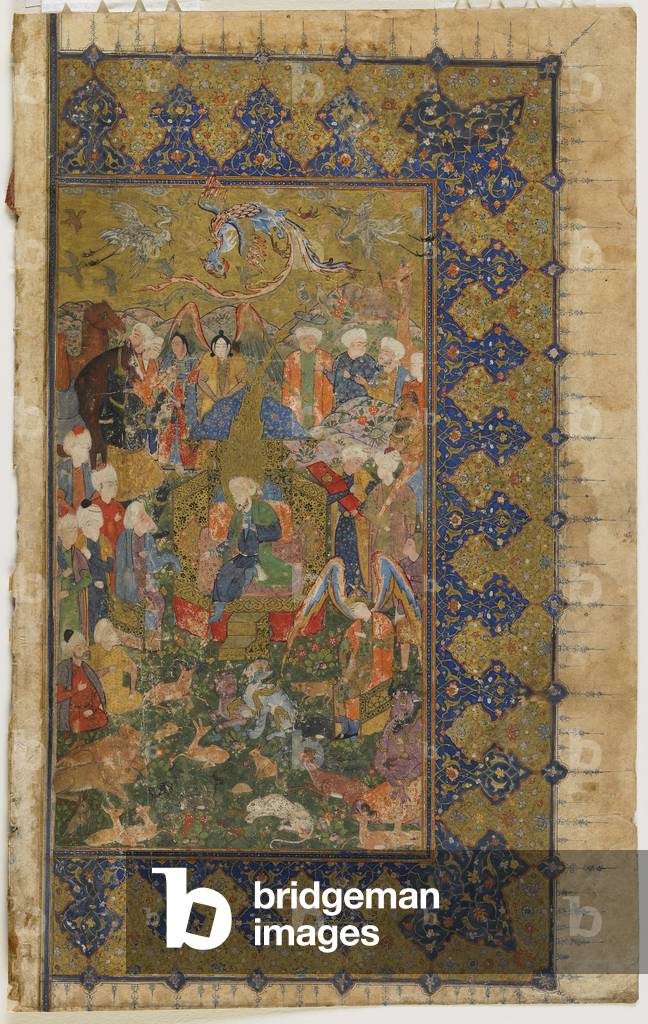 bridgeman
images